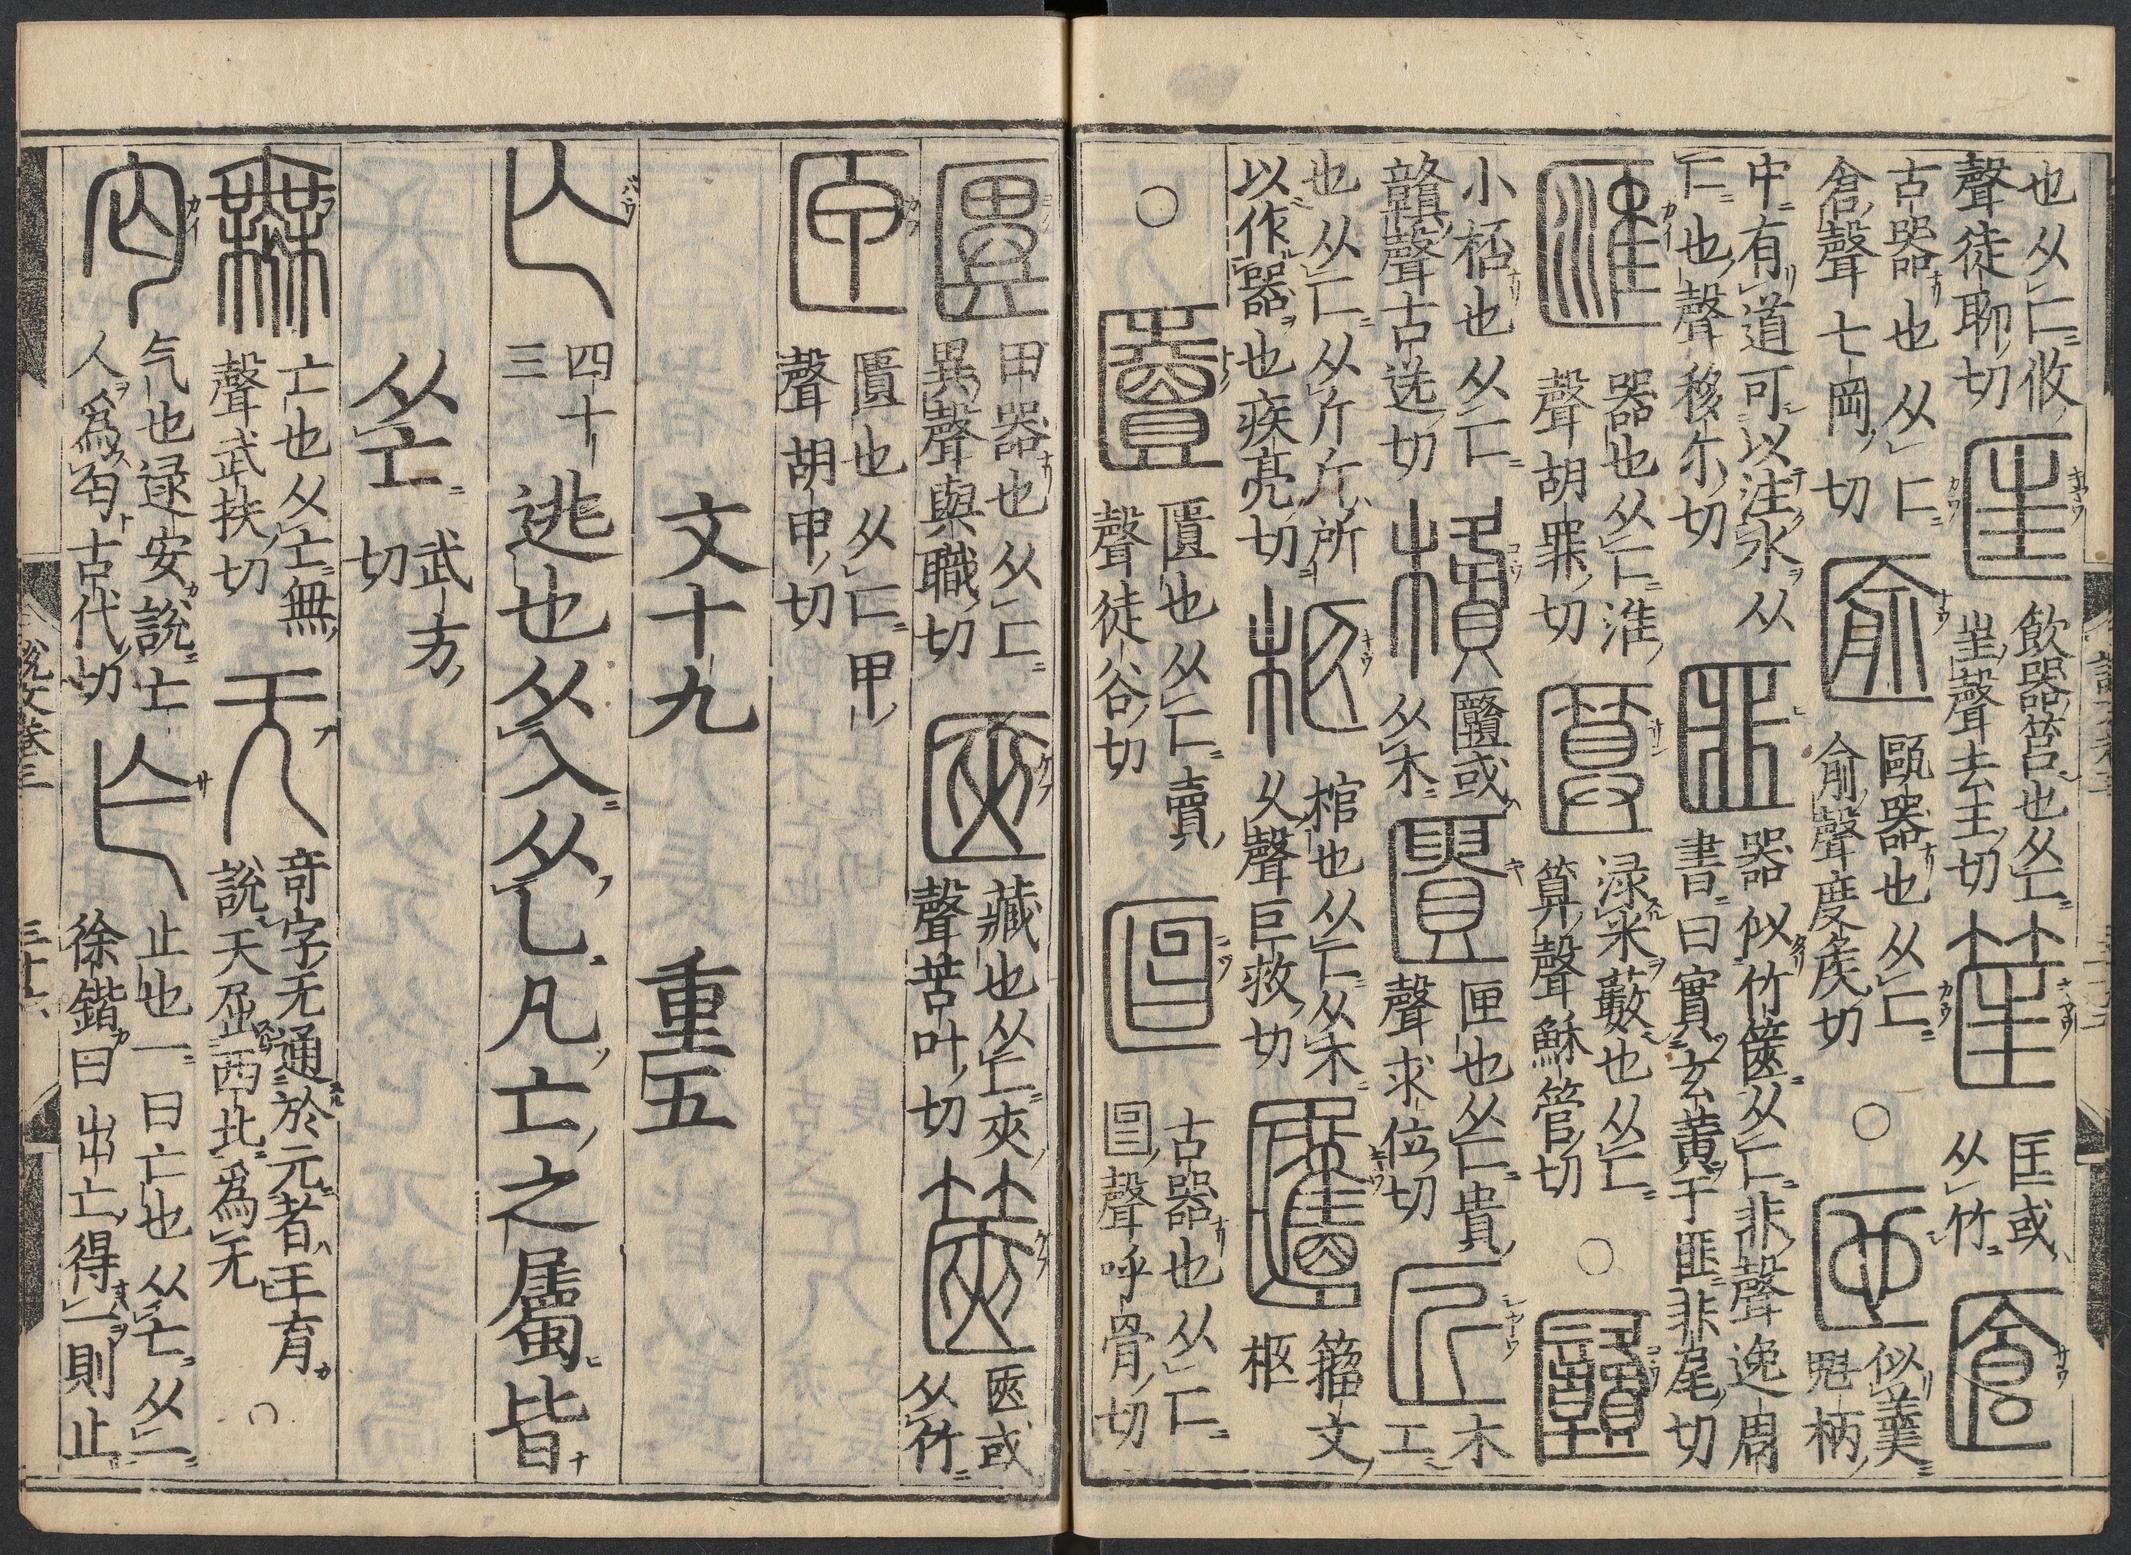 也从匚攸
聲徒聊切
匡
飲器筥也从匚
㞷聲去王切
筐
匡或
从竹
匼
古器也从匚
倉聲七岡切
匬
甌器也从匚
俞聲度矦切
○
匜
似羹
魁柄
中有道可以注水从
匚也聲移尔切
匪
器似竹篋从匚非聲逸周
書曰實玄黃于匪非尾切
匯
器也从匚淮
聲胡罪切
匴
渌米藪也从匚
算聲穌管切
○
𠥿
小桮也从匚
贛聲古送切
槓
𠥿或
从木
匱
匣也从匚貴
聲求位切
匠
木
工
也从匚从斤斤所
以作器也疾亮切
柩
棺也从匚从木
久聲巨救切
籒文
柩
○
匵
匱也从匚賣
聲徒谷切
匫
古器也从匚
曶聲呼骨切
田器也从匚
異聲與職切
匧
藏也从匚夾
聲苦叶切
篋
匧或
从竹
匣
匱也从匚甲
聲胡甲切
文十九 重五
亡
四十
三
逃也从入从乚凡亡之屬皆
从亡
武方
切
無
亡也从亡無
聲武扶切
无
奇字无通於元者王育
說天屈西北爲无
○
匃
气也逯安說亡
人爲匃古代切
乍
止也一曰亡也从亡从一
徐鍇曰出亡得一則止
說文卷三
三十六